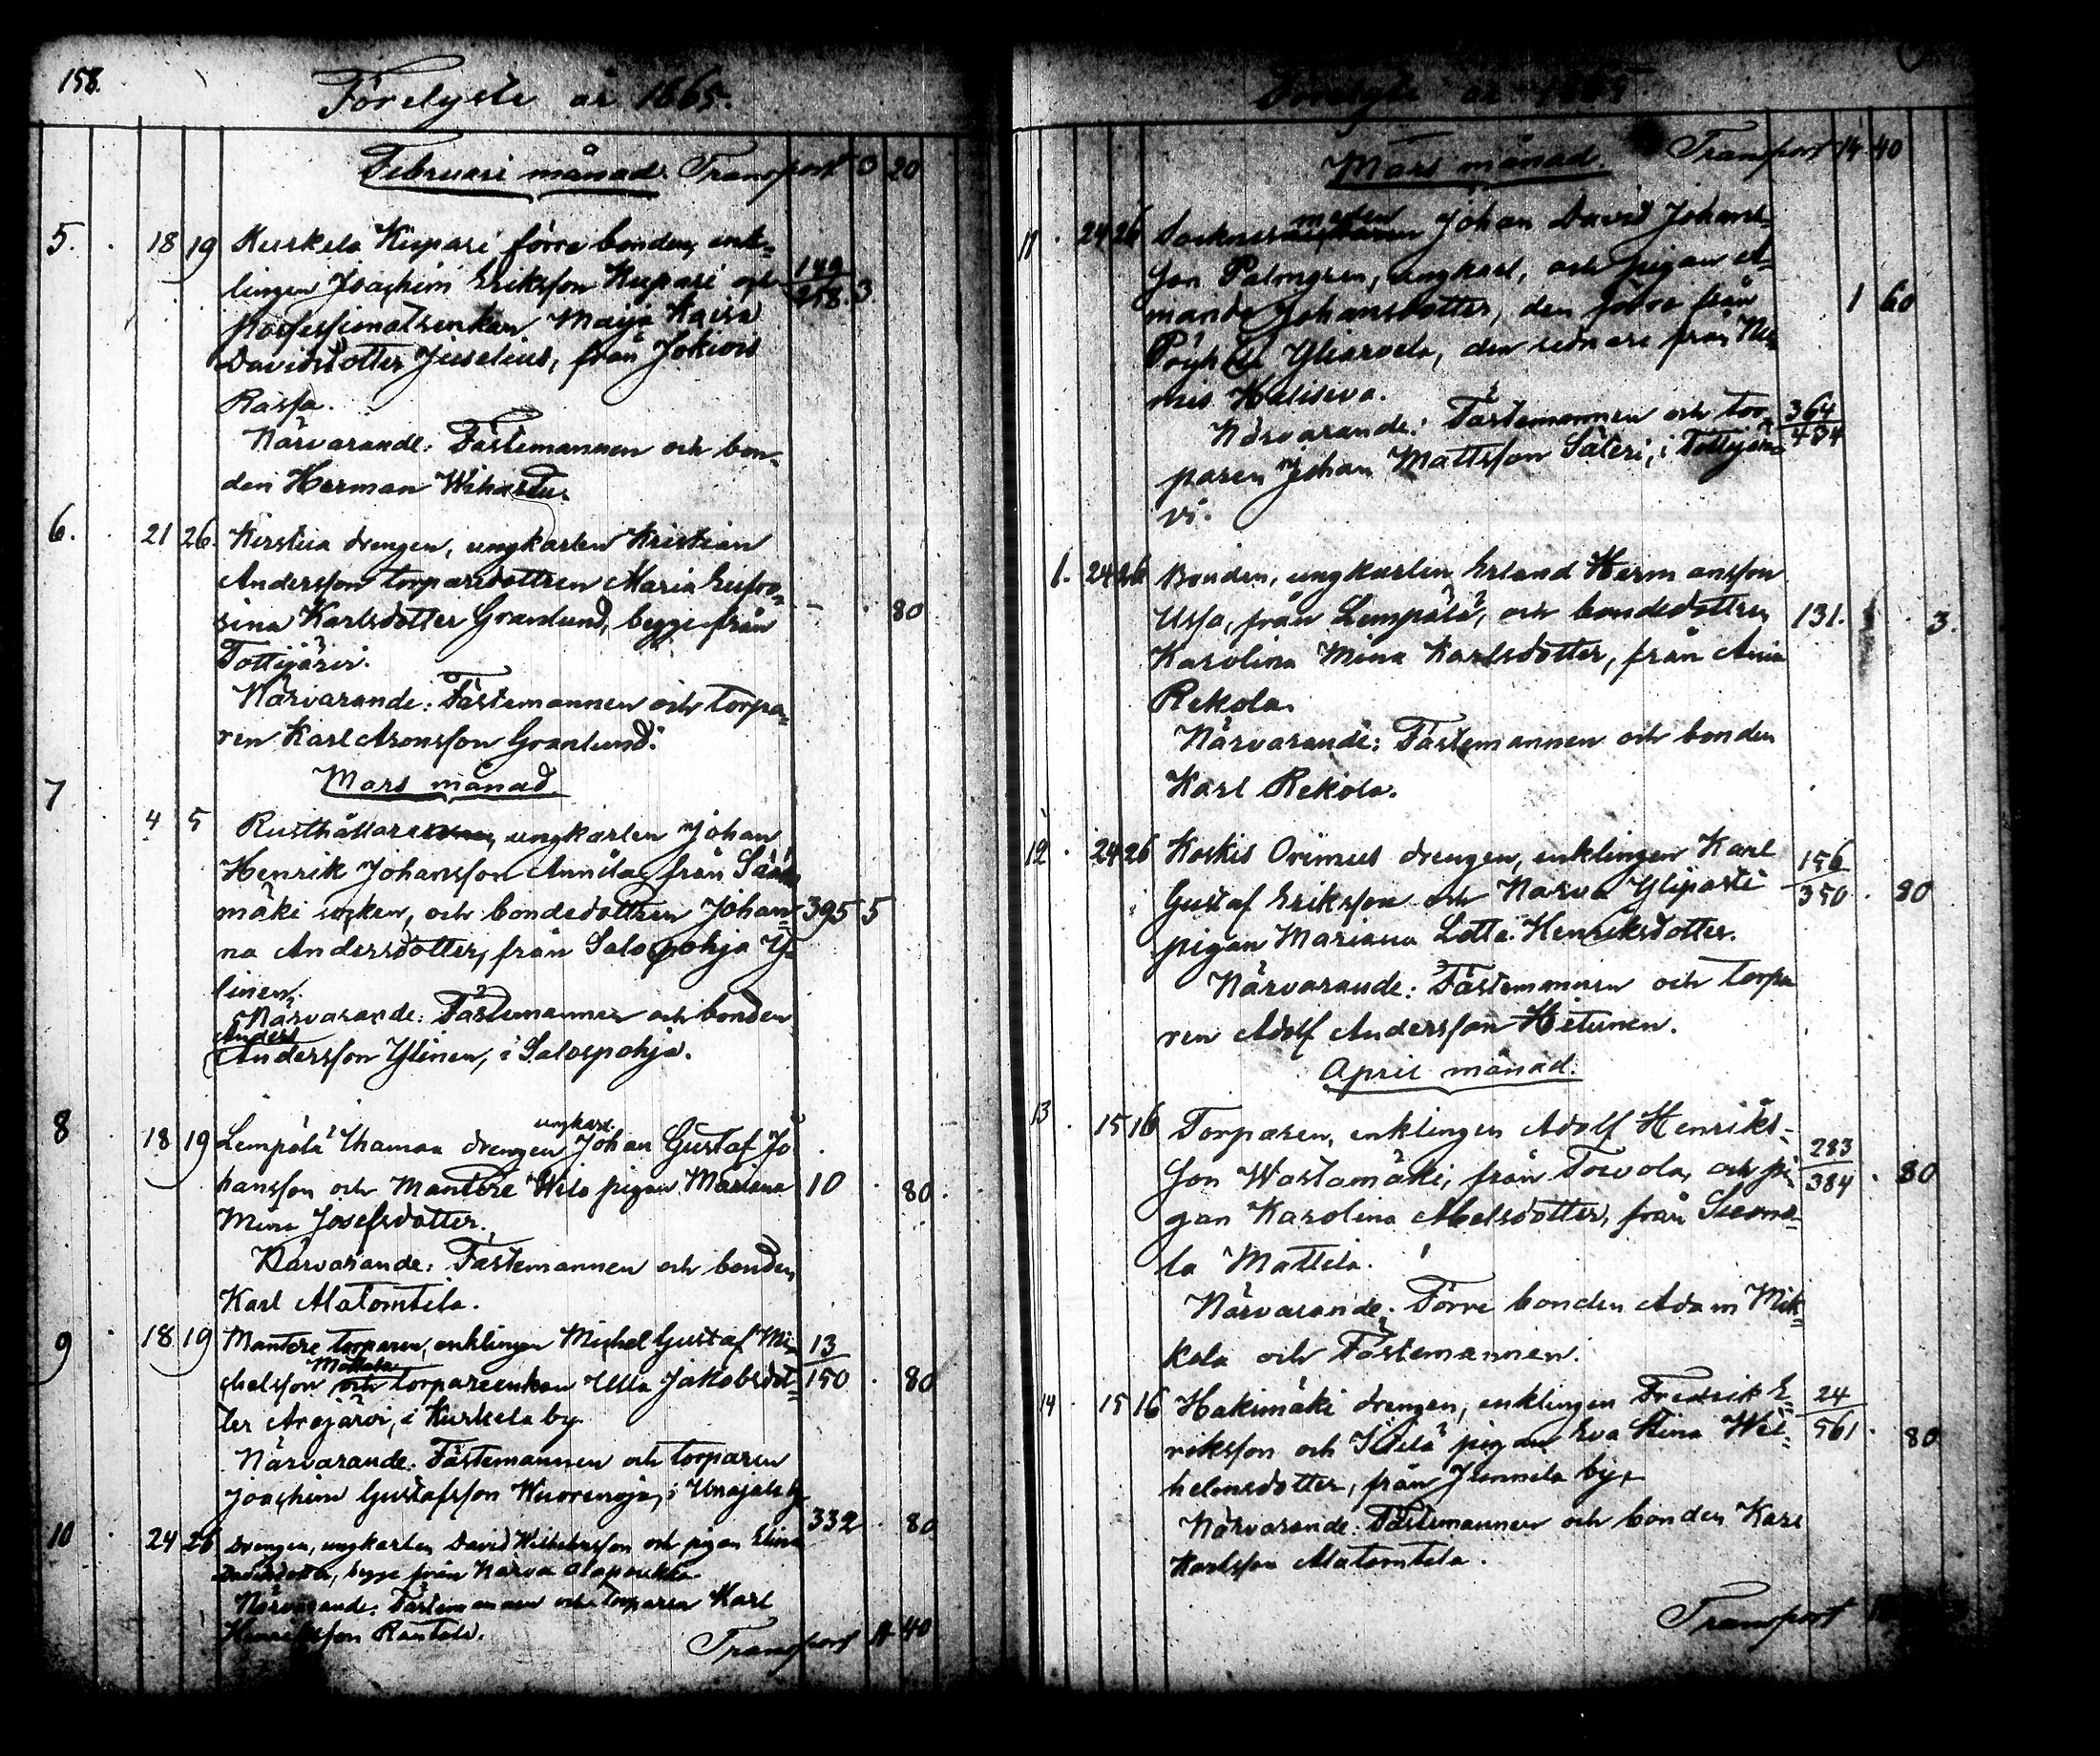 158.
Förelyste år 1865.
Februari månad. Transport 3 20
5. 18 19 Kurkela Kuspari förre bonden, enk-
lingen Joachim Eriksson Kuspari och 149
professionalsenkan Maija Kaisa 258. 3.
Davidsdotter Juselius, från Jokiois
Rassa.
Närvarande: Fästemannen och bon-
den Herman Wihastu.
6. 21 26. Kirstula drengen, ungkarlen Kristian
Andersson torparedottren Maria Eufro-
sina Karlsdotter Granlund, begge från 80
Tottijärvi.
Närvarande: Fästemannen och torpa-
ren Karl Aronsson Granlund.
Mars månad.
7 4 5 Rusthållaren ungkarlen Johan
Henrik Johansson Annila, från Sääx-
mäki socken, och bondedottren Johan- 395 5
na Andersdotter, från Salospohja Y-
linen.
Närvarande: Fästemannen och bonden
Anders
Andersson Ylinen, i Salospohja.
8 18 19 Lempälä Uhamaa drengen ungkarl. Johan Gustaf Jo
hansson och Mantere Wilo pigan Mariana 10 80.
Mina Josefsdotter.
Närvarande: Fästemannen och bonden
Karl Alatomtila.
9 18 19 Mantere torparen, enklingen Michel Gustaf Mi- 13
chelsson Mattala och torpareenkan Ulla Jakobsdot- 150 80
ter Arajärvi, i Kurkela by.
Närvarande: Fästemannen och torparen
Joachim Gustafsson Wuorenoja, i Unajala by
10 24 26 Drengen, ungkarlen David Wilhelmsson och pigan Elina 332 80
Davidsdotter, begge från Narva Alapoukka.
Närvarande: Fästemannen och torparen Karl
Henriksson Rantala.
Transport 14 40
Förelyste år 1865
Mars månad. Transport 14 40
11 24 26 Socknes Johan David Johans-
son Palmgren, ungkarl, och pigan A-
manda Johansdotter, den förre från 1 60
Pöyhölä Yliarvela, den sednare från Nur-
mis Huliseva.
Närvarande: Fästemannen och tor- 364
paren Johan Mattsson Säteri, i Tottijär- 484
vi.
1. 24 26 Bonden, ungkarlen Erland Hermansson
Ussa, från Lempälä, och bondedottren 131. 3.
Karolina Mina Karlsdotter, från Ania
Rekola.
Närvarande: Fästemannen och bonden
Karl Rekola.
12 24 26 Koskis Orimus drengen, enklingen Karl 156
Gustaf Eriksson och Narva Yliparti 350 80
pigan Mariana Lotta Henriksdotter.
Närvarande: Fästemannen och torpa
ren Adolf Andersson Hietunen.
April månad.
13 15 16 Torparen, enklingen Adolf Henriks-
son Wastamäki, från Toivola, och pi- 283
gan Karolina Abelsdotter, från Siema- 384 80
la Mattila.
Närvarande: Förre bonden Adam Mik-
kola och Fästemannen.
14 15 16 Hakimäki drengen, enklingen Fredrik E- 24
riksson och Jutila pigan Eva Stina Wil- 561 80
helmsdotter, från Jummila by.
Närvarande: Fästemannen och bonden Karl
Karlsson Alatomtila.
Transport